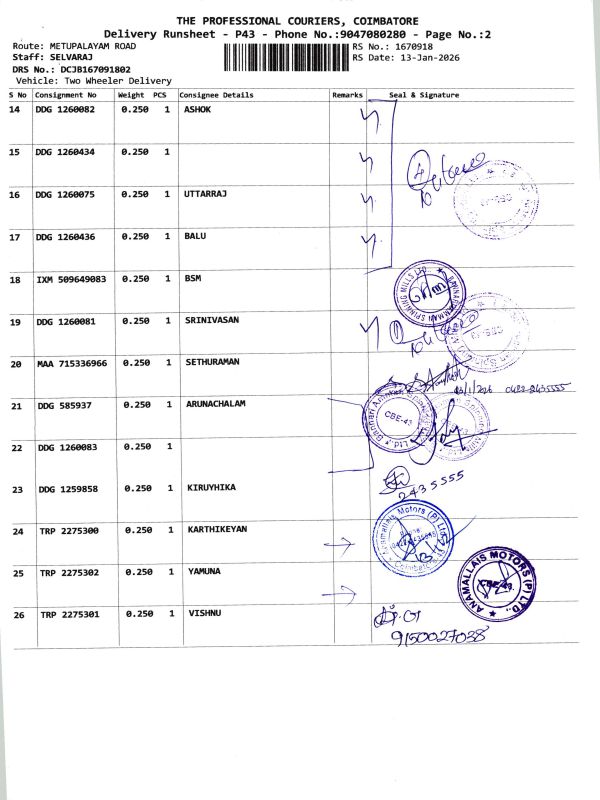 THE PROFESSIONAL COURIERS, COIMBATORE
Delivery Runsheet - P43 - Phone No.:9047080280 - Page No.:2
Route: METUPALAYAM ROAD
RS No.: 1670918
Staff: SELVARAJ
RS Date: 13-Jan-2026
DRS No.: DCJB167091802
Vehicle: Two Wheeler Delivery
S No Consignment No Weight PCS Consignee Details Remarks Seal & Signature
14 DDG 1260082 0.250 1 ASHOK
15 DDG 1260434 0.250 1
16 DDG 1260075 0.250 1 UTTARRAJ
17 DDG 1260436 0.250 1 BALU
18 IXM 509649083 0.250 1 BSM
19 DDG 1260081 0.250 1 SRINIVASAN
20 MAA 715336966 0.250 1 SETHURAMAN
13/1/2026 0422-2435555
21 DDG 585937 0.250 1 ARUNACHALAM
CBE-43
22 DDG 1260083 0.250 1
23 DDG 1259858 0.250 1 KIRUYHIKA
2435555
24 TRP 2275300 0.250 1 KARTHIKEYAN
Anamallais Motors (P) Ltd.
25 TRP 2275302 0.250 1 YAMUNA
ANAMALLAIS MOTORS (P) LTD.,
CBE-43
26 TRP 2275301 0.250 1 VISHNU
9150027038